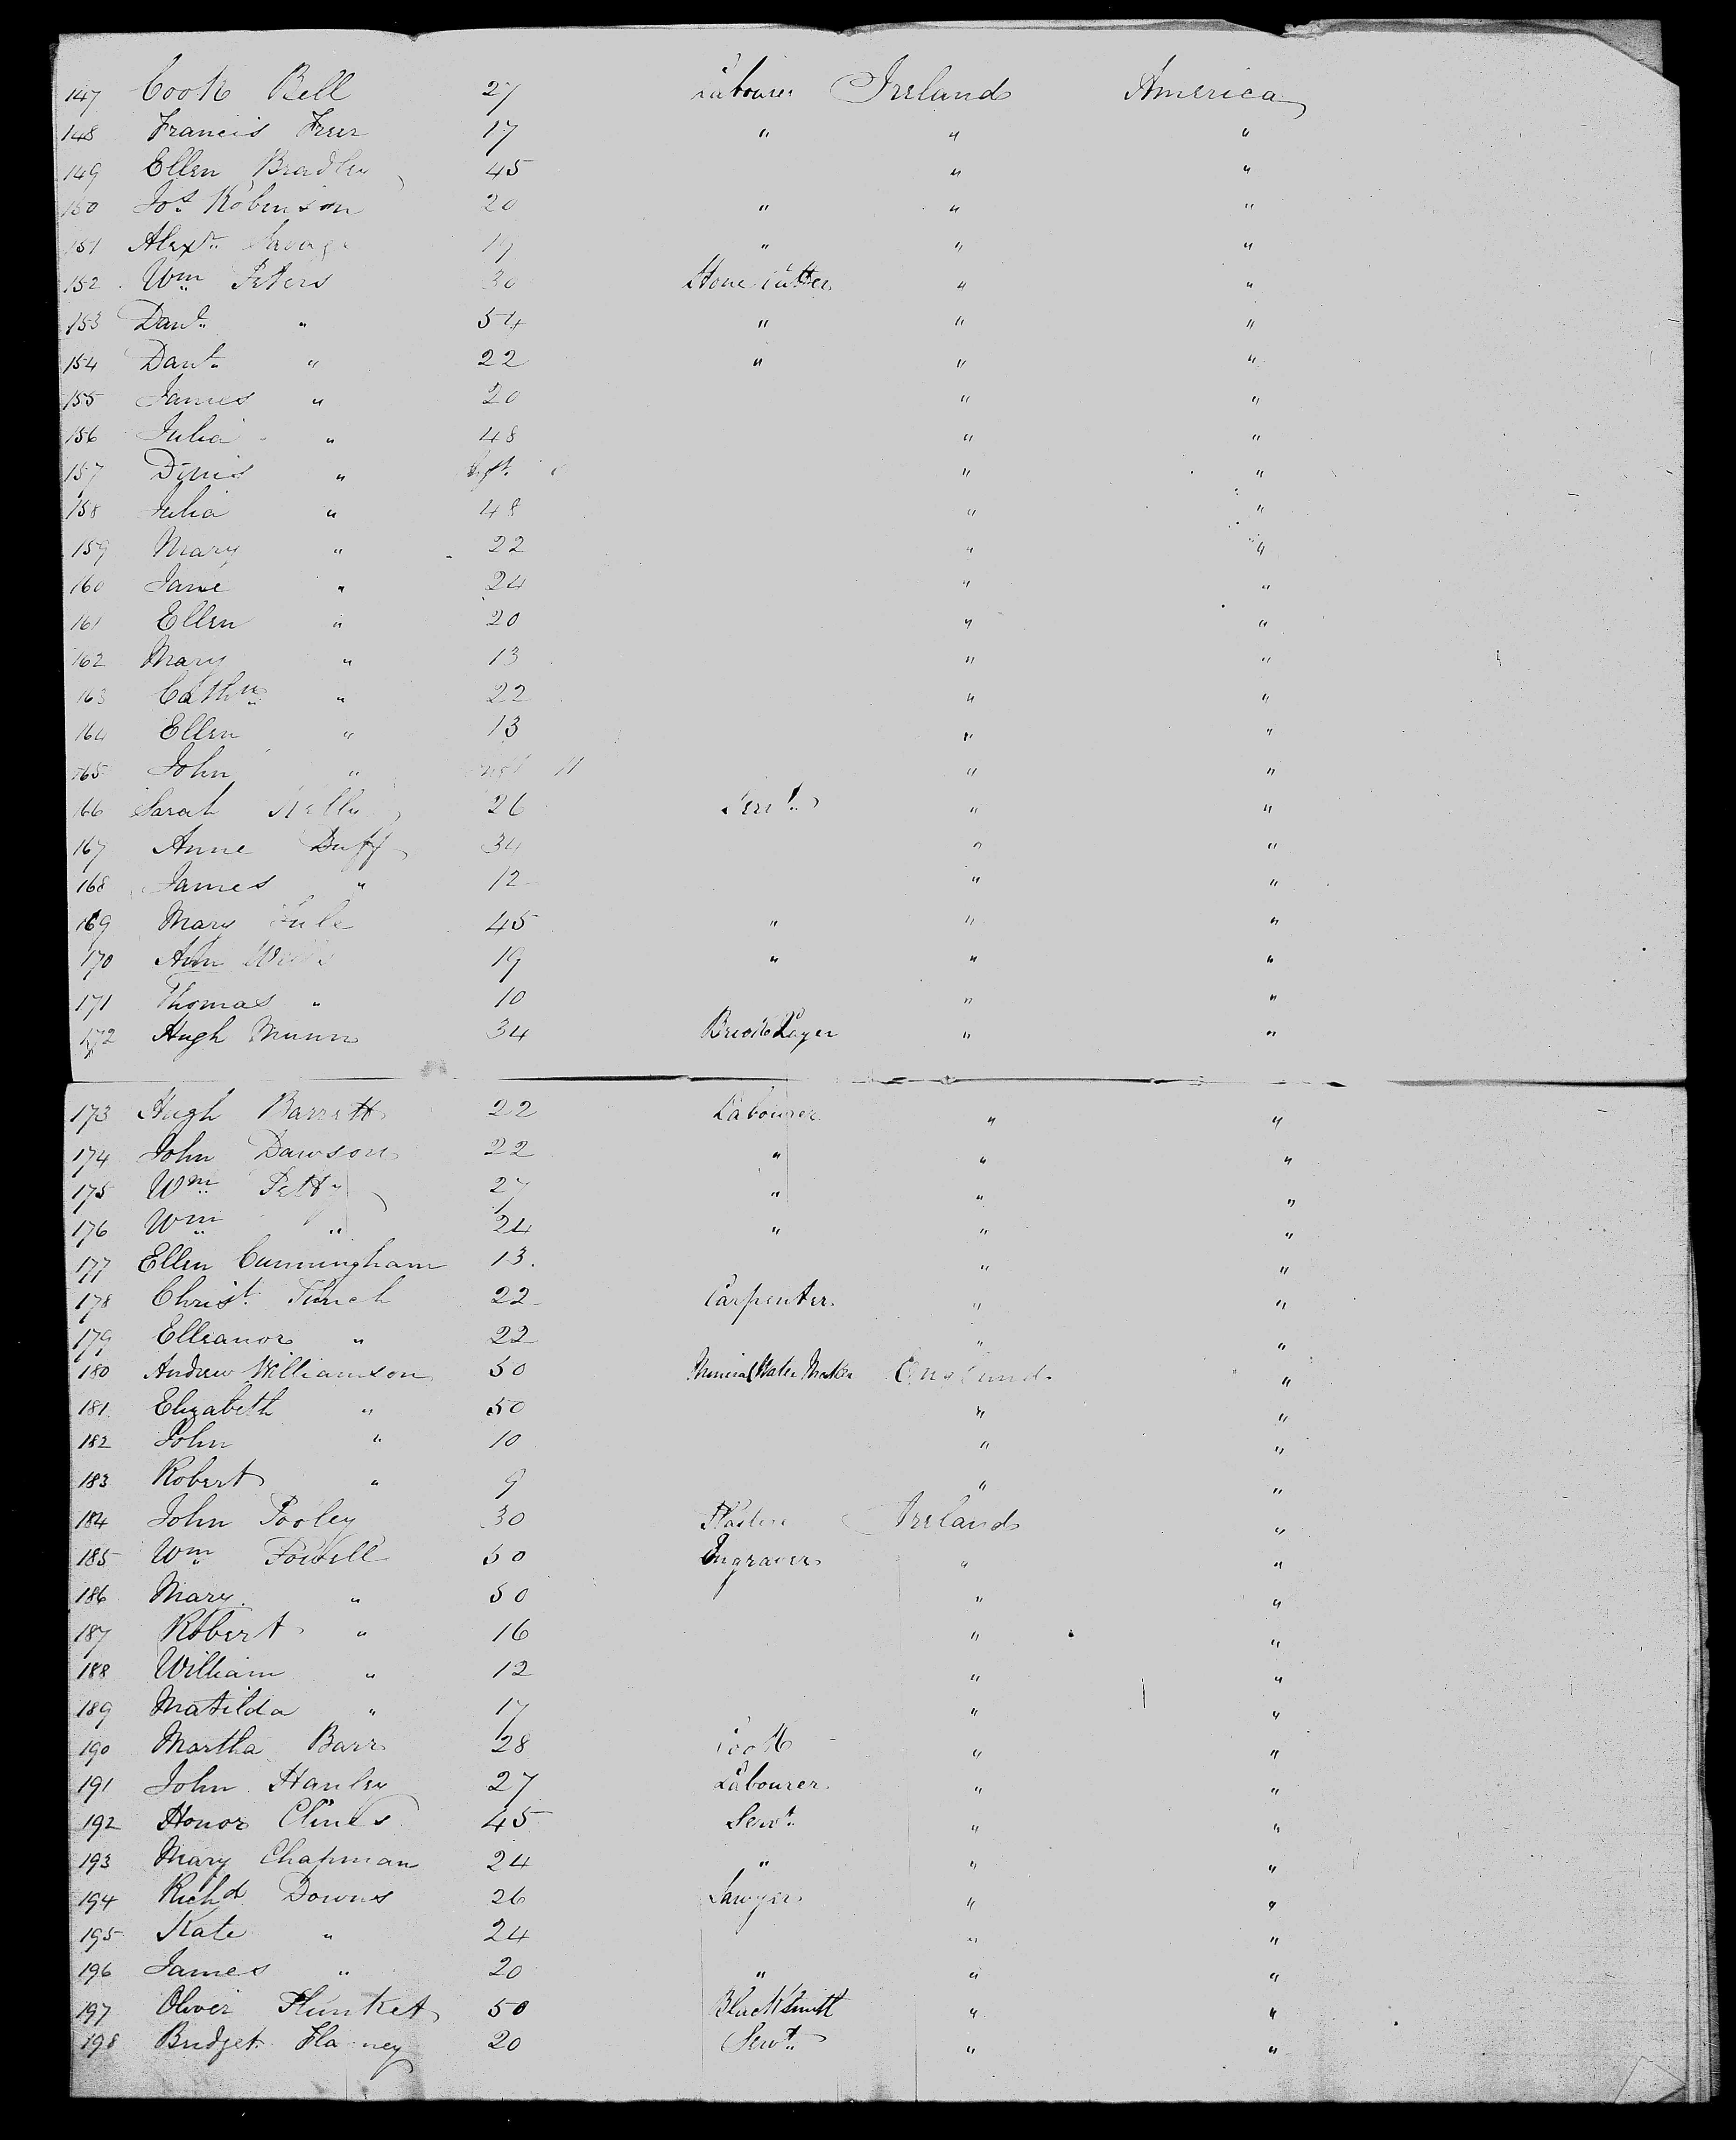 147 Cook Bell 27 Labourer Ireland America
148 Francis Freer 17 " " "
149 Ellen Bradley 45 " "
150 Jos. Robinson 20 " " "
151 Alexr. Savage 19 " " "
152 Wm Peters 30 Stone Cutter " "
153 Danl. " 54 " " "
154 Danl. " 22 " " "
155 James " 20 " "
156 Julia " 48 " "
157 Dinis " " "
158 Julia " 48 " "
159 Mary " 22 " "
160 Jane " 24 " "
161 Ellen " 20 " "
162 Mary " 13 " "
163 Cathn " 22 " "
164 Ellen " 13 " "
165 John " 11 " "
166 Sarah Kelly 26 Servt. " "
167 Anne Duff 34 " "
168 James " 12 " "
169 Mary 45 " " "
170 Ann 19 " " "
171 Thomas " 10 " "
172 Hugh Munn 34 Brick Layer " "
173 Hugh Barrett 22 Labourer " "
174 John Dawson 22 " " "
175 Wm Petty 27 " " "
176 Wm " 24 " " "
177 Ellen Cunningham 13. " "
178 Christ. Finch 22 Carpenter " "
179 Elleanor " 22 " "
180 Andrew Williamson 50 Mineral Water Maker England "
181 Elizabeth " 50 " "
182 John " 10 " "
183 Robert " 9 " "
184 John Pooley 30 Ireland "
185 Wm Powell 50 Engraver " "
186 Mary " 50 " "
187 Robert " 16 " "
188 William " 12 " "
189 Matilda " 17 " "
190 Martha Barr 28 Cook " "
191 John Hanley 27 Labourer " "
192 Honor Clines 45 Servt. " "
193 Mary Chapman 24 " " "
194 Richd Downs 26 Sawyer " "
195 Kate " 24 " "
196 James " 20 " " "
197 Oliver Plunket 50 Blacksmith " "
198 Bridget 20 Servt. " "